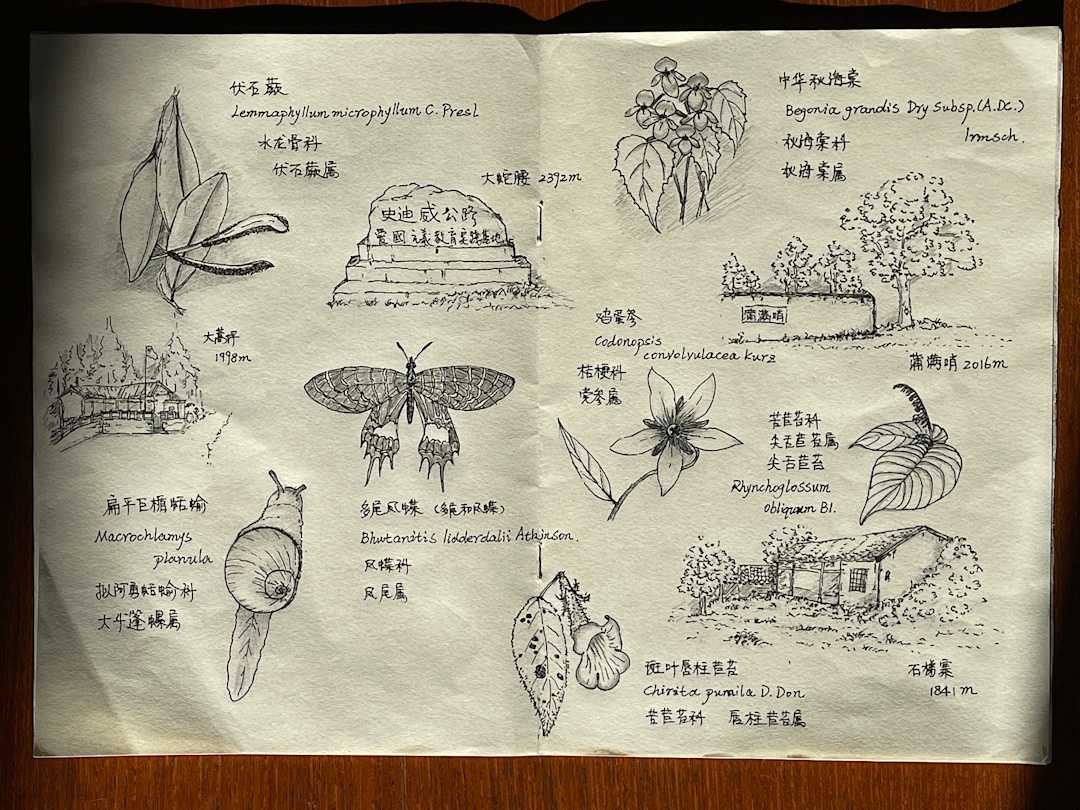 伏石蕨
Lemmaphyllum microphyllum C. Presl
水龙骨科
伏石蕨属
大蛇腰 2392m
史迪威公路
愛國主義教育実践基地
大蒿坪
1998m
扁平巨楯蛞蝓
Macrochlamys
planula
拟阿勇蛞蝓科
大斗蓬螺属
多尾凤蝶 (多尾和凤蝶)
Bhutanitis lidderdalii Atkinson.
凤蝶科
凤尾属
中华秋海棠
Begonia grandis Dry Subsp. (A.DC.)
Irmsch.
秋海棠科
秋海棠属
蒲满哨
蒲满哨 2016m
鸡蛋参
Codonopsis
convolvulacea Kurz
桔梗科
党参属
苦苣苔科
尖舌苣苔属
尖舌苣苔
Rhynchoglossum
obliquum Bl.
斑叶唇柱苣苔
Chirita pumila D. Don
苦苣苔科 唇柱苣苔属
石梯寨
1841m